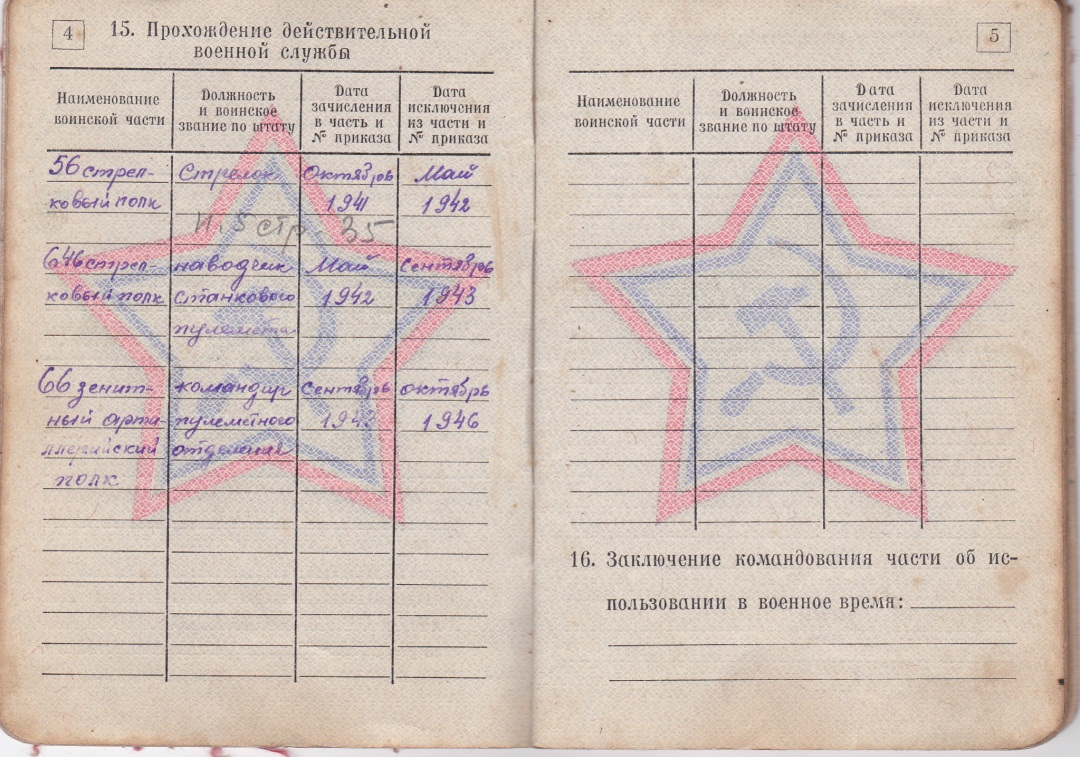 4
15. Прохождение действительной
военной службы
Наименование
воинской части
Должность
и воинское
звание по штату
Дата
зачисления
в часть и
№ приказа
Дата
исключения
из части и
№ приказа
56 стрел-
ковый полк
Стрелок
Октябрь
1941
Май
1942
стр. 35
646 стрел-
ковый полк
наводчик
станкового
пулемета
Май
1942
Сентябрь
1943
66 зенит-
ный арти-
ллерийский
полк
командир
пулеметного
отделения
Сентябрь
1943
октябрь
1946
5
Наименование
воинской части
Должность
и воинское
звание по штату
Дата
зачисления
в часть и
№ приказа
Дата
исключения
из части и
№ приказа
16. Заключение командования части об ис-
пользовании в военное время: